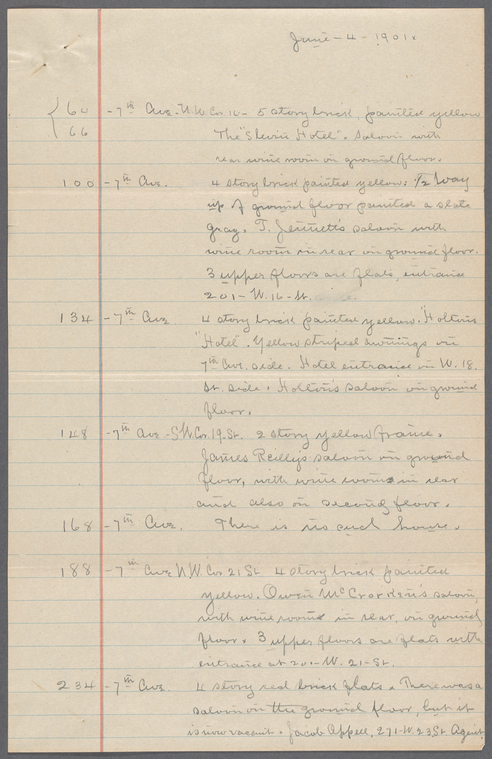 June - 4 - 1901.
60 - 7th Ave. N.W. Cor. 5 story brick, painted yellow
66 The "Hotel". Saloon with
rear wine room on ground floor.
100 - 7th Ave. 4 story brick painted yellow. 1/2 way
up of ground floor painted a slate
gray. T. saloon with
wine room in rear on ground floor.
3 upper floors are flats, entrance
201 - W. 16 - St.
134 - 7th Ave. 4 story brick painted yellow. "Holton's
"Hotel. Yellow striped awnings on
7th Ave. side. Hotel entrance on W. 18.
St. side. Holton's saloon on ground
floor.
148 - 7th Ave - S.W. Cor. 19. St. 2 story yellow frame.
James Reilly's saloon on ground
floor, with wine rooms in rear
and also on second floor.
168 - 7th Ave. There is no such house.
188 - 7th Ave N.W. Cor 21 St. 4 story brick painted
yellow. Owen McCrorken's saloon,
with wine rooms in rear, on ground
floor. 3 upper floors are flats with
entrance at 201 - W. 21 - St.
234 - 7th Ave. 4 story red brick flats. There was a
saloon on the ground floor, but it
is now vacant. Jacob Appell, 271 - W. 23 St. Agent.